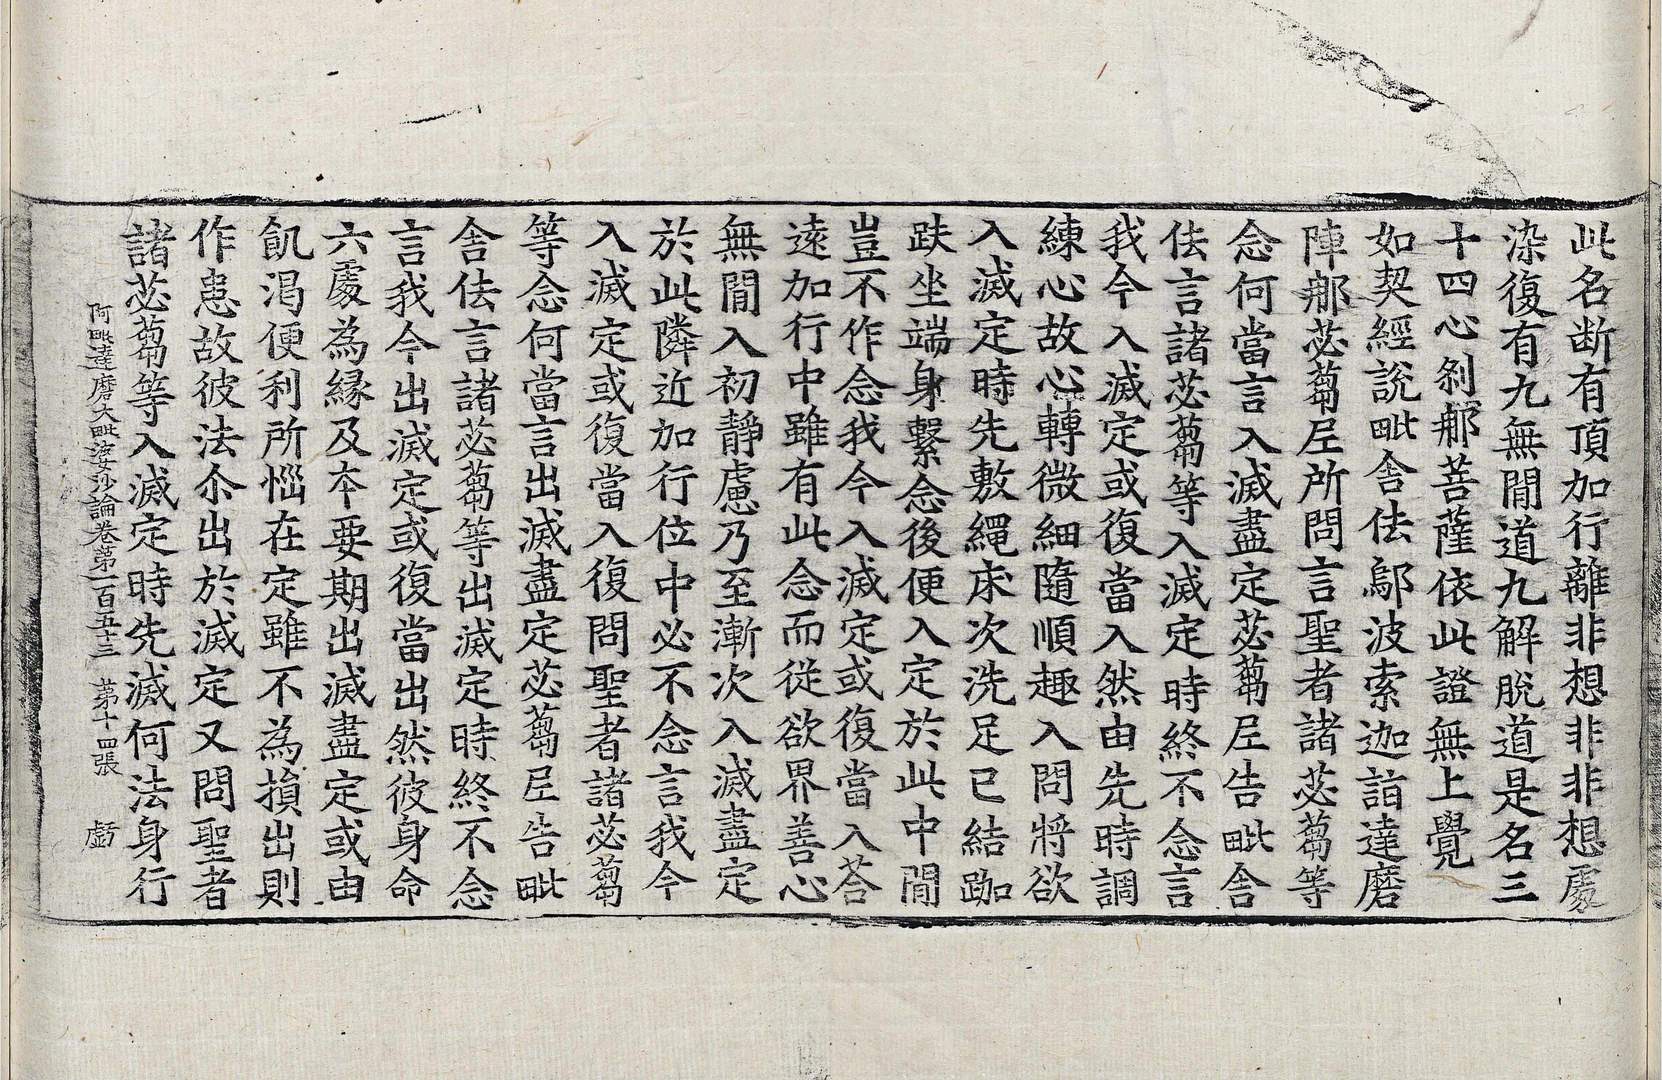 此名断有頂加行離非想非非想處
染復有九無間道九解脫道是名三
十四心刹郍菩薩依此證無上覺
如契經說毗舍佉鄔波索迦詣達磨
陣郍苾蒭𡰱所問言聖者諸苾蒭等
念何當言入滅盡定苾蒭𡰱告毗舍
佉言諸苾蒭等入滅定時終不念言
我今入滅定或復當入然由先時調
練心故心轉微細隨順趣入問將欲
入滅定時先敷繩床次洗足已結跏
趺坐端身繫念後便入定於此中間
豈不作念我今入滅定或復當入荅
遠加行中雖有此念而從欲界善心
無間入初靜慮乃至漸次入滅盡定
於此隣近加行位中必不念言我今
入滅定或復當入復問聖者諸苾蒭
等念何當言出滅盡定苾蒭𡰱告毗
舍佉言諸苾蒭等出滅定時終不念
言我今出滅定或復當出然彼身命
六處為緣及夲要期出滅盡定或由
飢渴便利所惱在定雖不為損出則
作患故彼法尒出於滅定又問聖者
諸苾蒭等入滅定時先滅何法身行
阿毗達磨大毗婆沙論卷第一百五十三 第十四張 戱